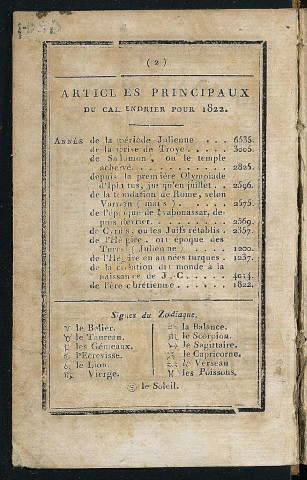 ( 2 )
ARTICLES PRINCIPAUX
DU CALENDRIER POUR 1822.
ANNÉS de la période Julienne . . . 6535.
de la prise de Troye . . . 3005.
de Salomon, ou le temple
achevé . . . 2825.
depuis la première Olympiade
d'Iphitus, jusqu'en juillet . . 2596.
de la fondation de Rome, selon
Varron (mars) . . . 2575.
de l'époque de Nabonassar, de-
puis février . . . 2569.
de Cyrus, ou les Juifs rétablis . 2357.
de l'Hégire, ou époque des
Turcs (Julienne) . . . 1200.
de l'Hégire en années turques . 1237.
de la création du monde à la
naissance de J.-C. . . 4014.
de l'ère chrétienne . . . 1822.
Signes du Zodiaque.
♈ le Belier.
♉ le Taureau.
♊ les Gémeaux.
♋ l'Ecrevisse.
♌ le Lion.
♍ Vierge.
♎ la Balance.
♏ le Scorpion.
♐ le Sagittaire.
♑ le Capricorne.
♒ le Verseau
♓ les Poissons.
☉ le Soleil.